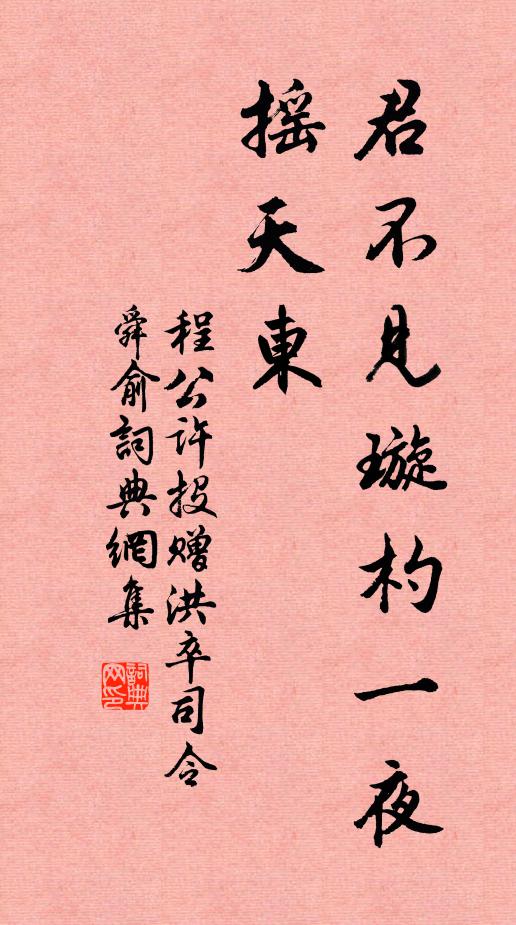 君不見璇杓一夜
搖天東
程公許投贈洪卒司令
舜俞詞典網集
詞典网印